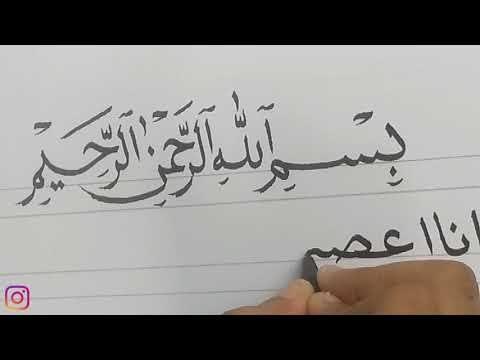 بِسْمِ ٱللَّهِ ٱلرَّحْمَٰنِ ٱلرَّحِيمِ
انا اعص